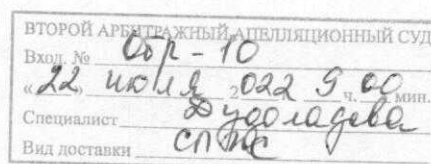 ВТОРОЙ АРБИТРАЖНЫЙ АПЕЛЛЯЦИОННЫЙ СУД
Вход. № Обр - 10
«22» июля 2022 9 ч. 00 мин.
Специалист Дудоладова
Вид доставки